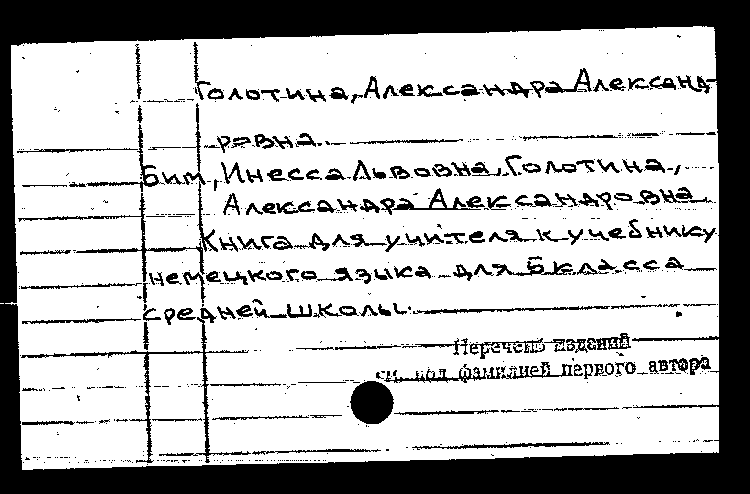 Голотина, Александра Александ-
ровна.
Бим, Инесса Львовна, Голотина,
Александра Александровна.
Книга для учителя к учебнику
немецкого языка для 5 класса
средней школы.
Перечень изданий
см. под фамилией первого автора